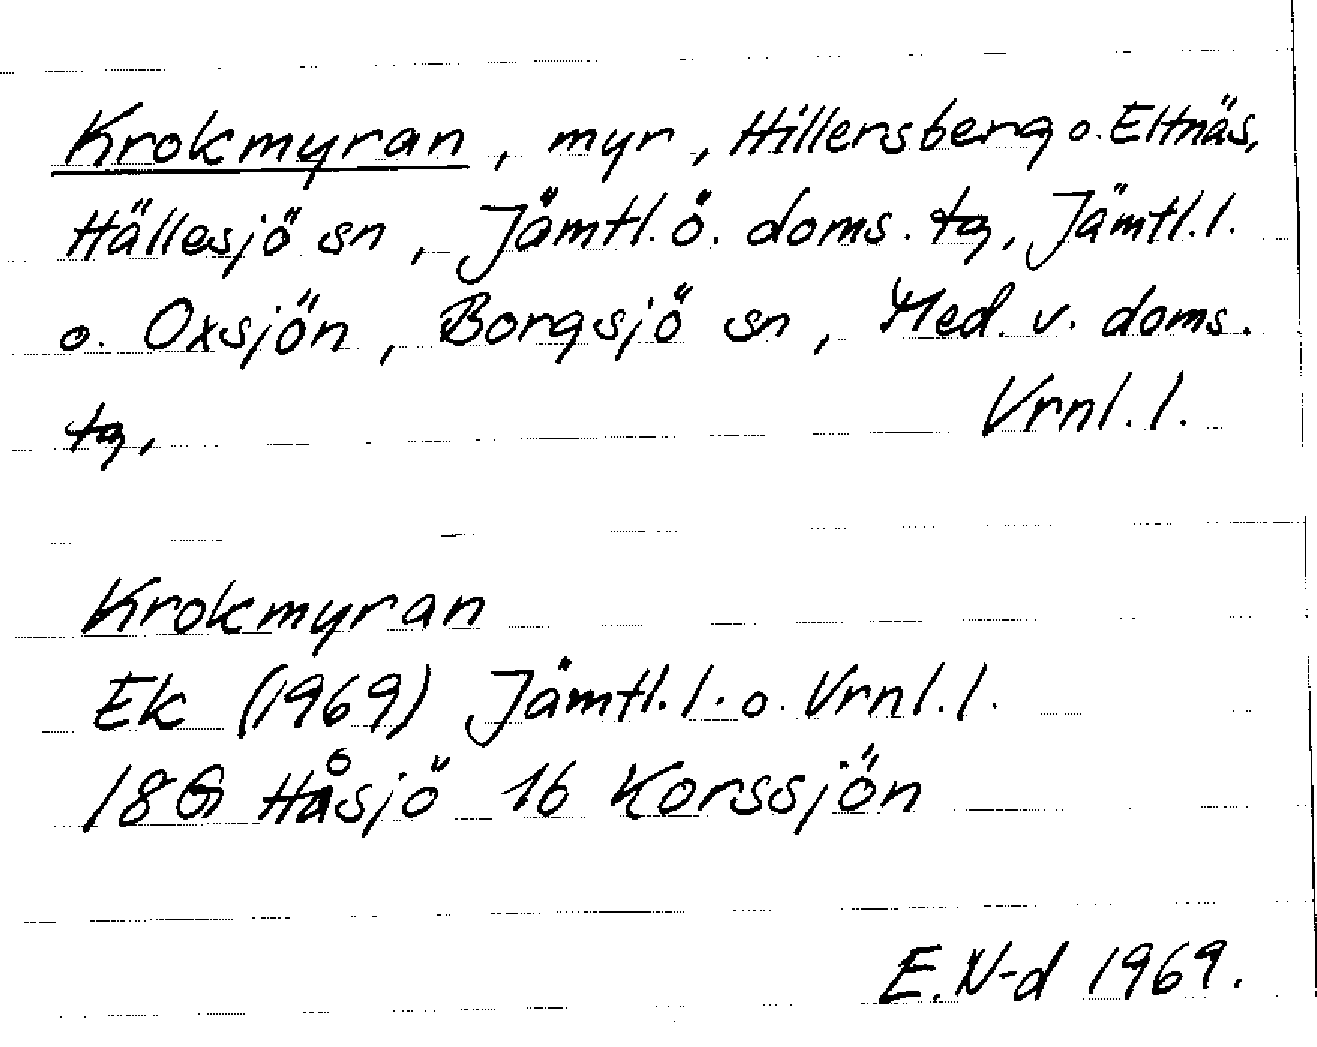 Krokmyran, myr, Hillersberg o. Eltnäs,
Hällesjö sn, Jämtl. ö. doms. tg, Jämtl. l.
o. Oxsjön, Borgsjö sn, Med. v. doms.
tg, Vrnl. l.
Krokmyran
Ek (1969) Jämtl. l. o. Vrnl. l.
18G Håsjö 16 Korssjön
E. N-d 1969.